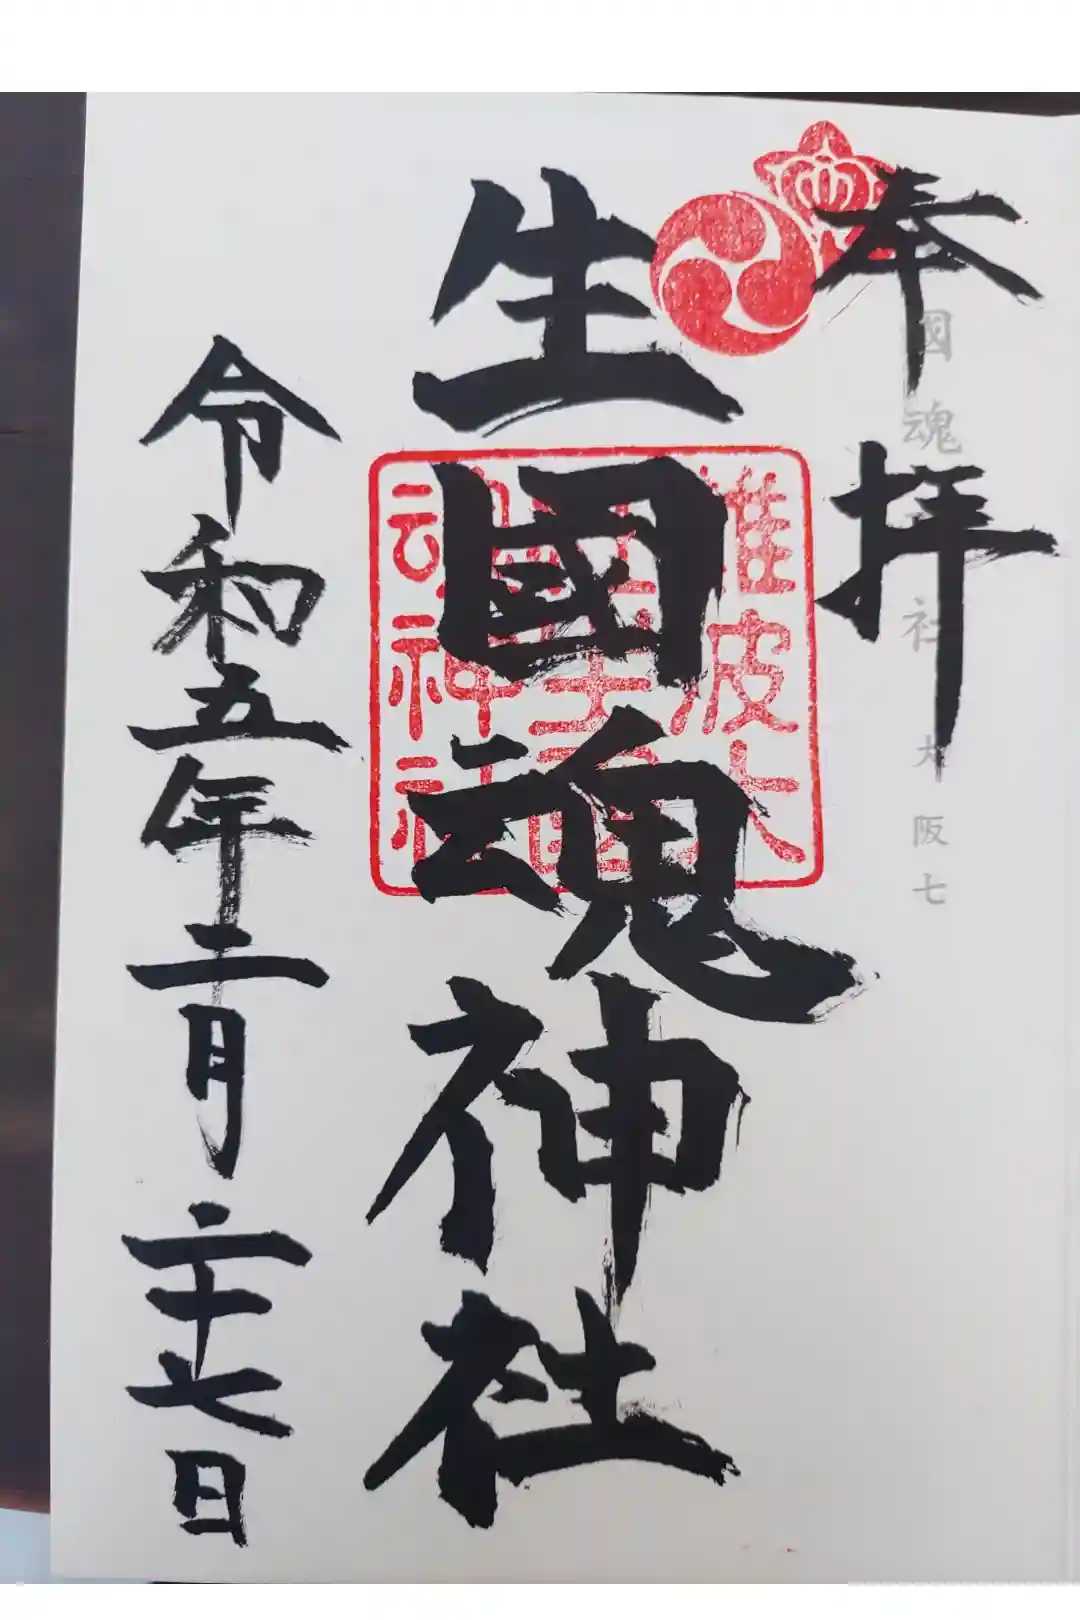 奉拝
國魂 社 大阪七
生國魂神社
難波大
魂神社
令和五年二月二十七日